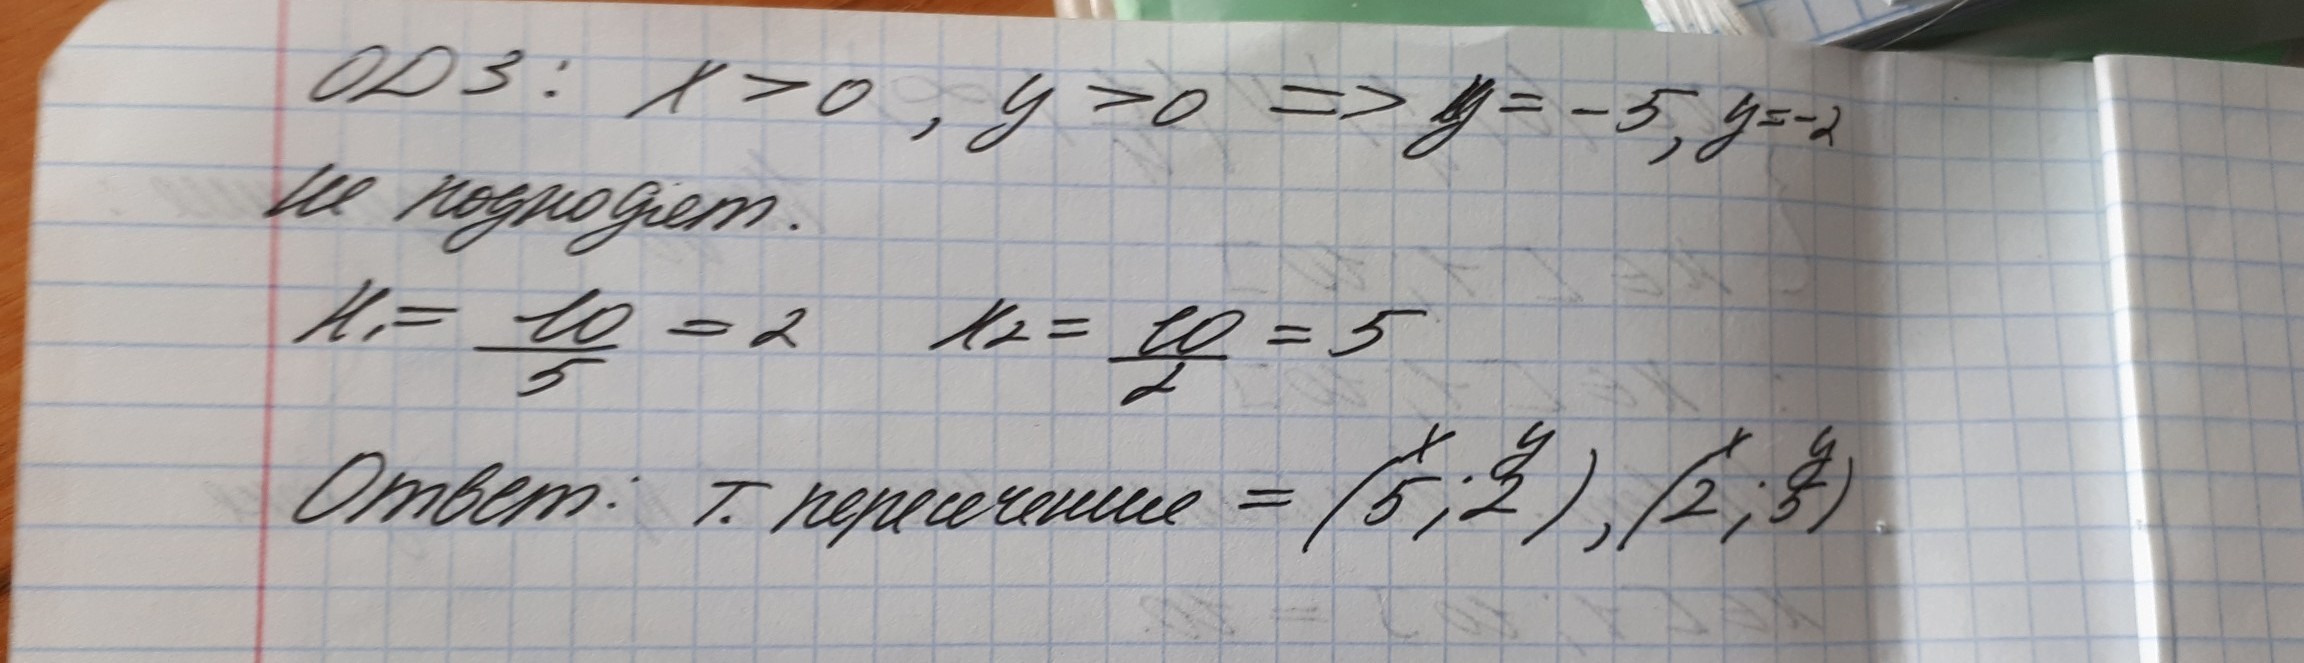 ОДЗ: x > 0, y > 0 => y = -5, y = -2
не подходят.
x₁ = 10/5 = 2 x₂ = 10/2 = 5
x y x y
Ответ: т. пересечение = (5; 2), (2; 5)